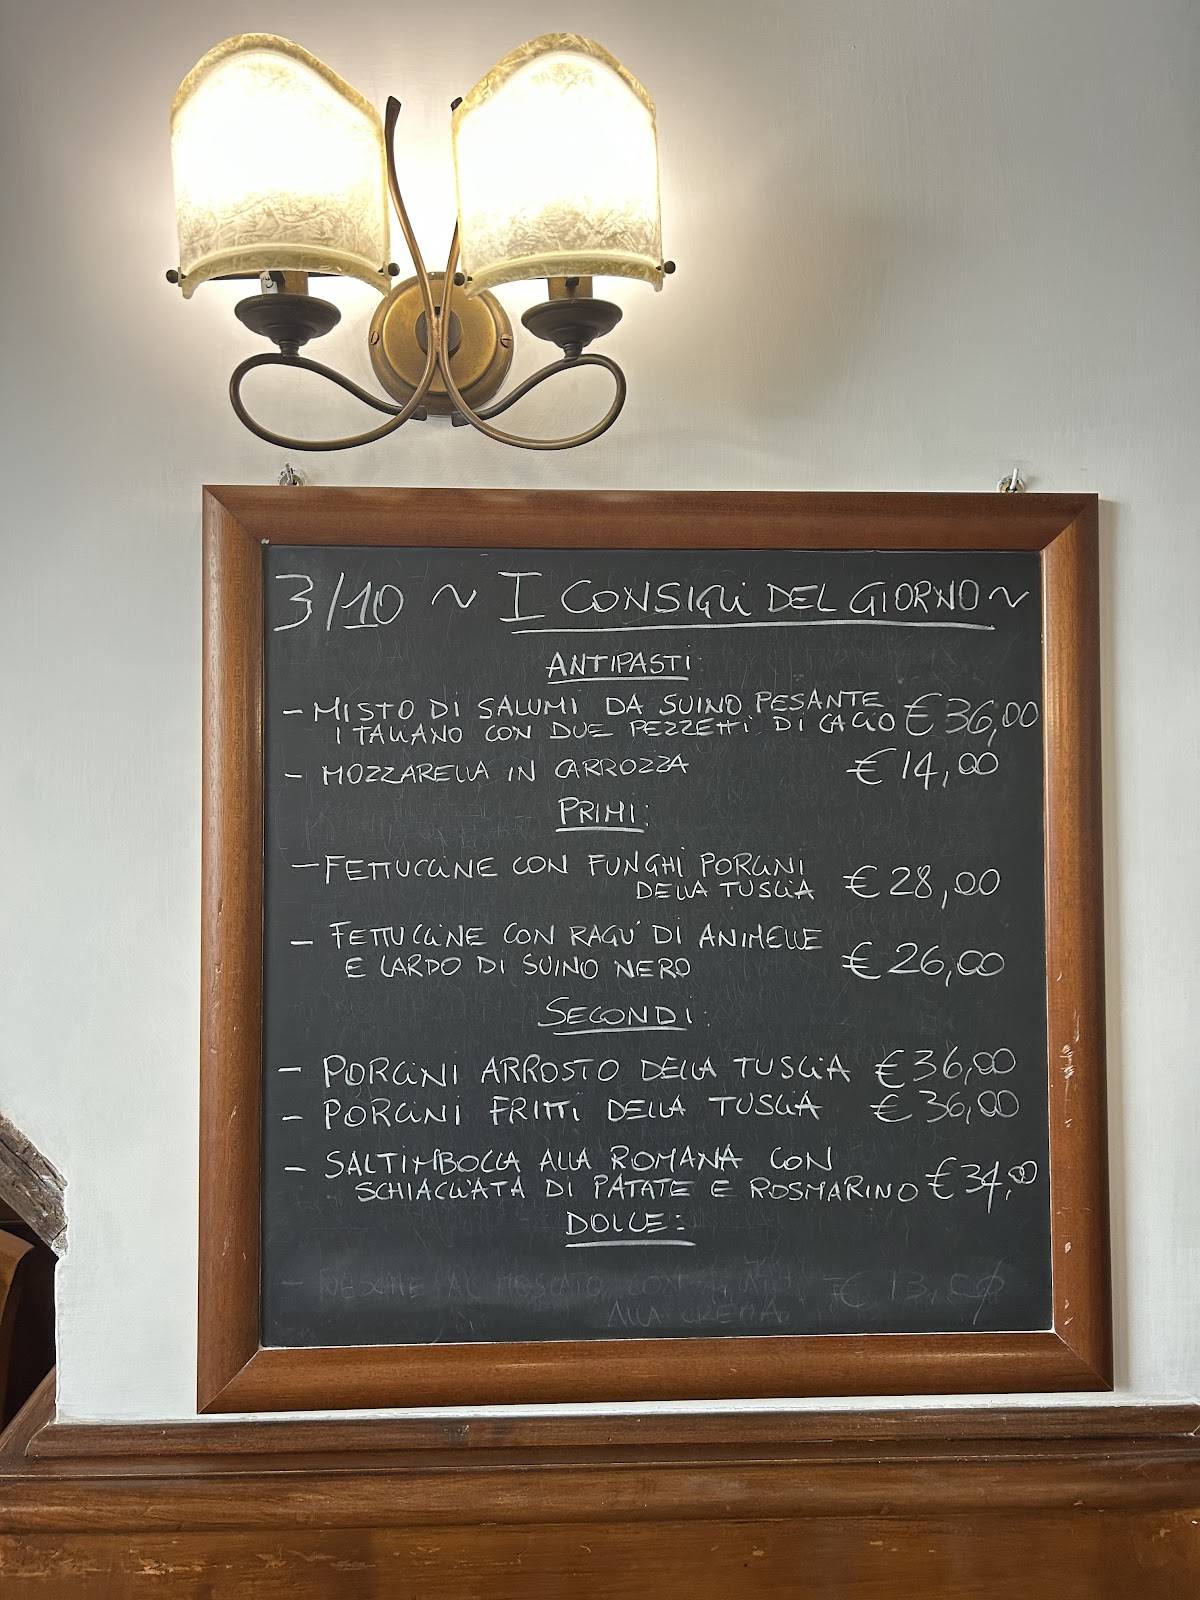 3/10 ~ I CONSIGLI DEL GIORNO ~
ANTIPASTI:
- MISTO DI SALUMI DA SUINO PESANTE
ITALIANO CON DUE PEZZETTI DI CACIO € 36,00
- MOZZARELLA IN CARROZZA € 14,00
PRIMI:
- FETTUCCINE CON FUNGHI PORCINI
DELLA TUSCIA € 28,00
- FETTUCCINE CON RAGU' DI ANIMELLE
E LARDO DI SUINO NERO € 26,00
SECONDI:
- PORCINI ARROSTO DELLA TUSCIA € 36,00
- PORCINI FRITTI DELLA TUSCIA € 36,00
- SALTIMBOCCA ALLA ROMANA CON
SCHIACCIATA DI PATATE E ROSMARINO € 34,00
DOLCE:
- PESCHE AL MOSCATO CON € 13,00
ALLA CREMA